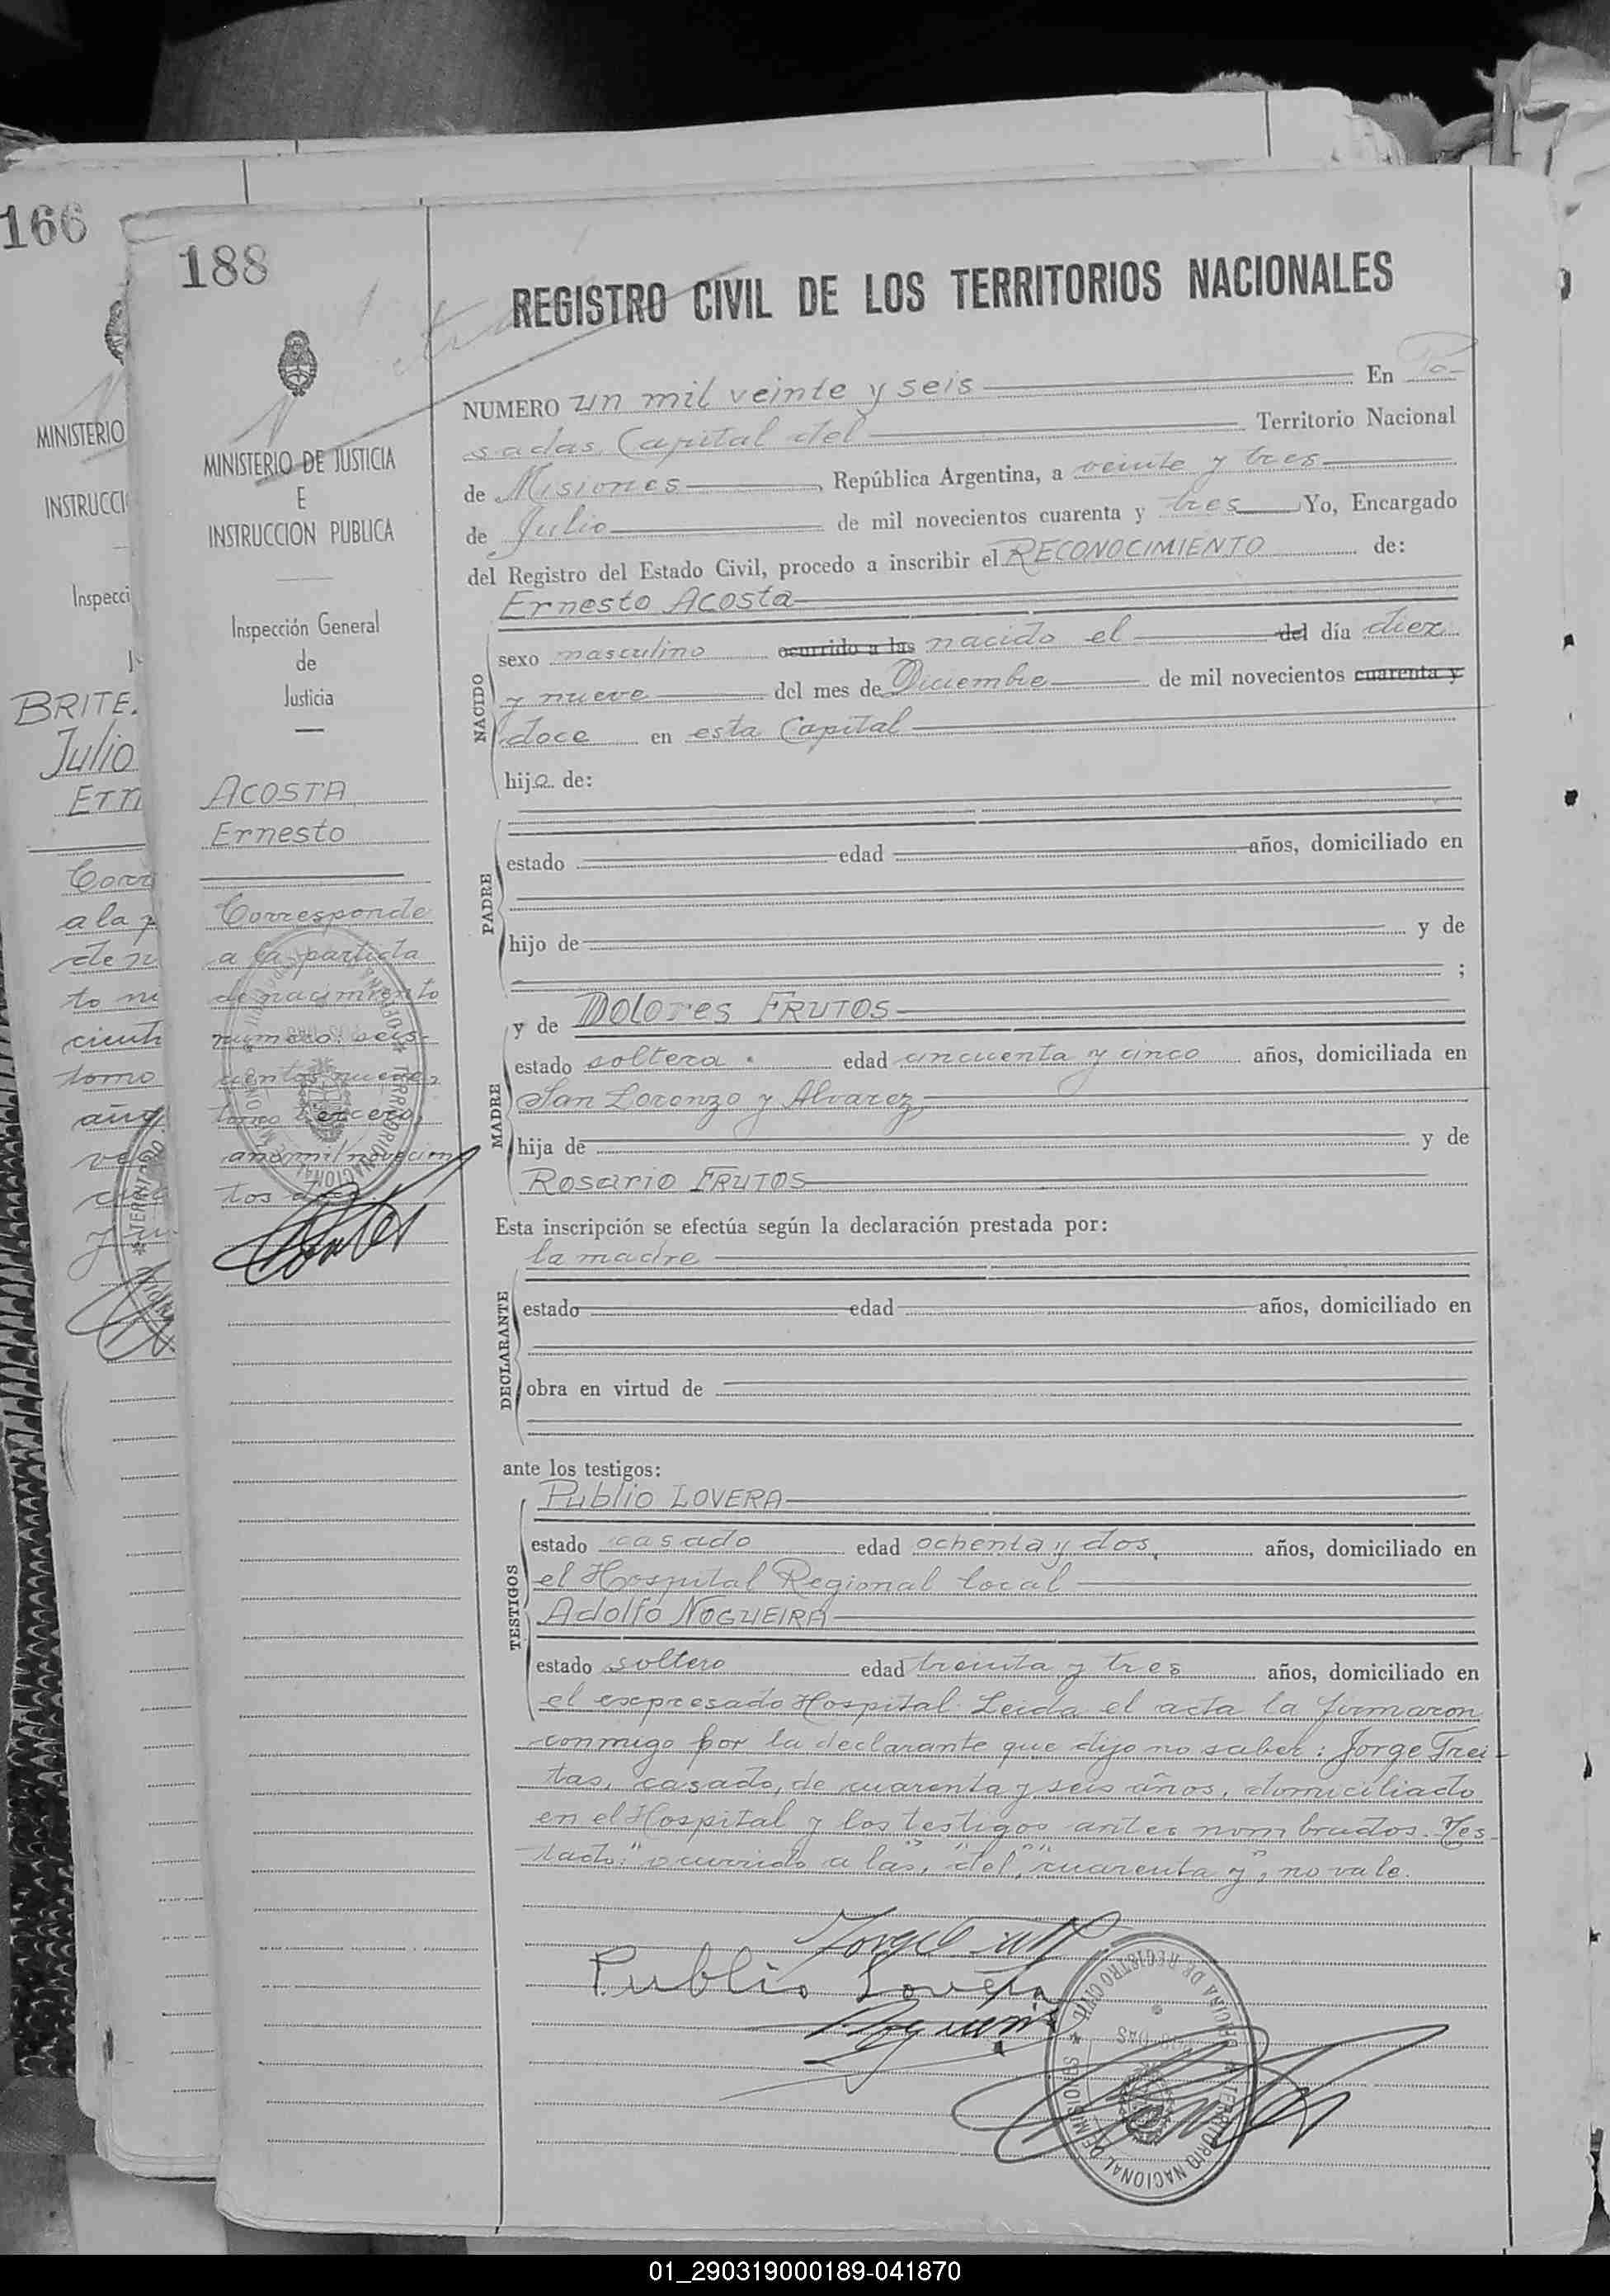 166
MINISTERIO
INSTRUCCI
Inspecci
BRITE.
Julio
Ern
Corr
a la p
de n
to nu
cient
tomo
año
188
MINISTERIO DE JUSTICIA
E
INSTRUCCION PUBLICA
Inspección General
de
Justicia
ACOSTA
Ernesto
Corresponde
a la partida
de nacimiento
número: seis-
cientos nueve,
tomo tercero,
año mil novecien
tos
REGISTRO CIVIL DE LOS TERRITORIOS NACIONALES
NUMERO un mil veinte y seis En Po-
sadas, Capital del Territorio Nacional
de Misiones, República Argentina, a veinte y tres
de Julio de mil novecientos cuarenta y tres Yo, Encargado
del Registro del Estado Civil, procedo a inscribir el RECONOCIMIENTO de:
Ernesto Acosta
NACIDO
sexo masculino ocurrido a las nacido el del día diez
y nueve del mes de Diciembre de mil novecientos cuarenta y
doce en esta Capital
hijo de:
PADRE
estado edad años, domiciliado en
hijo de y de
;
y de Dolores FRUTOS
MADRE
estado soltera edad cincuenta y cinco años, domiciliada en
San Lorenzo y Alvarez
hija de y de
Rosario FRUTOS
Esta inscripción se efectúa según la declaración prestada por:
la madre
DECLARANTE
estado edad años, domiciliado en
obra en virtud de
ante los testigos:
TESTIGOS
Publio LOVERA
estado casado edad ochenta y dos, años, domiciliado en
el Hospital Regional local
Adolfo NOGUEIRA
estado soltero edad treinta y tres años, domiciliado en
el expresado Hospital. Leída el acta la firmaron
conmigo por la declarante que dijo no saber: Jorge Frei-
tas, casado, de cuarenta y seis años, domiciliado
en el Hospital y los testigos antes nombrados. Tes-
tado: "ocurrido a las", "del", "cuarenta y", no vale.
Publio Lovera
OFICINA DE REGISTRO CIVIL
TERRITORIO NACIONAL DE MISIONES
01_290319000189-041870